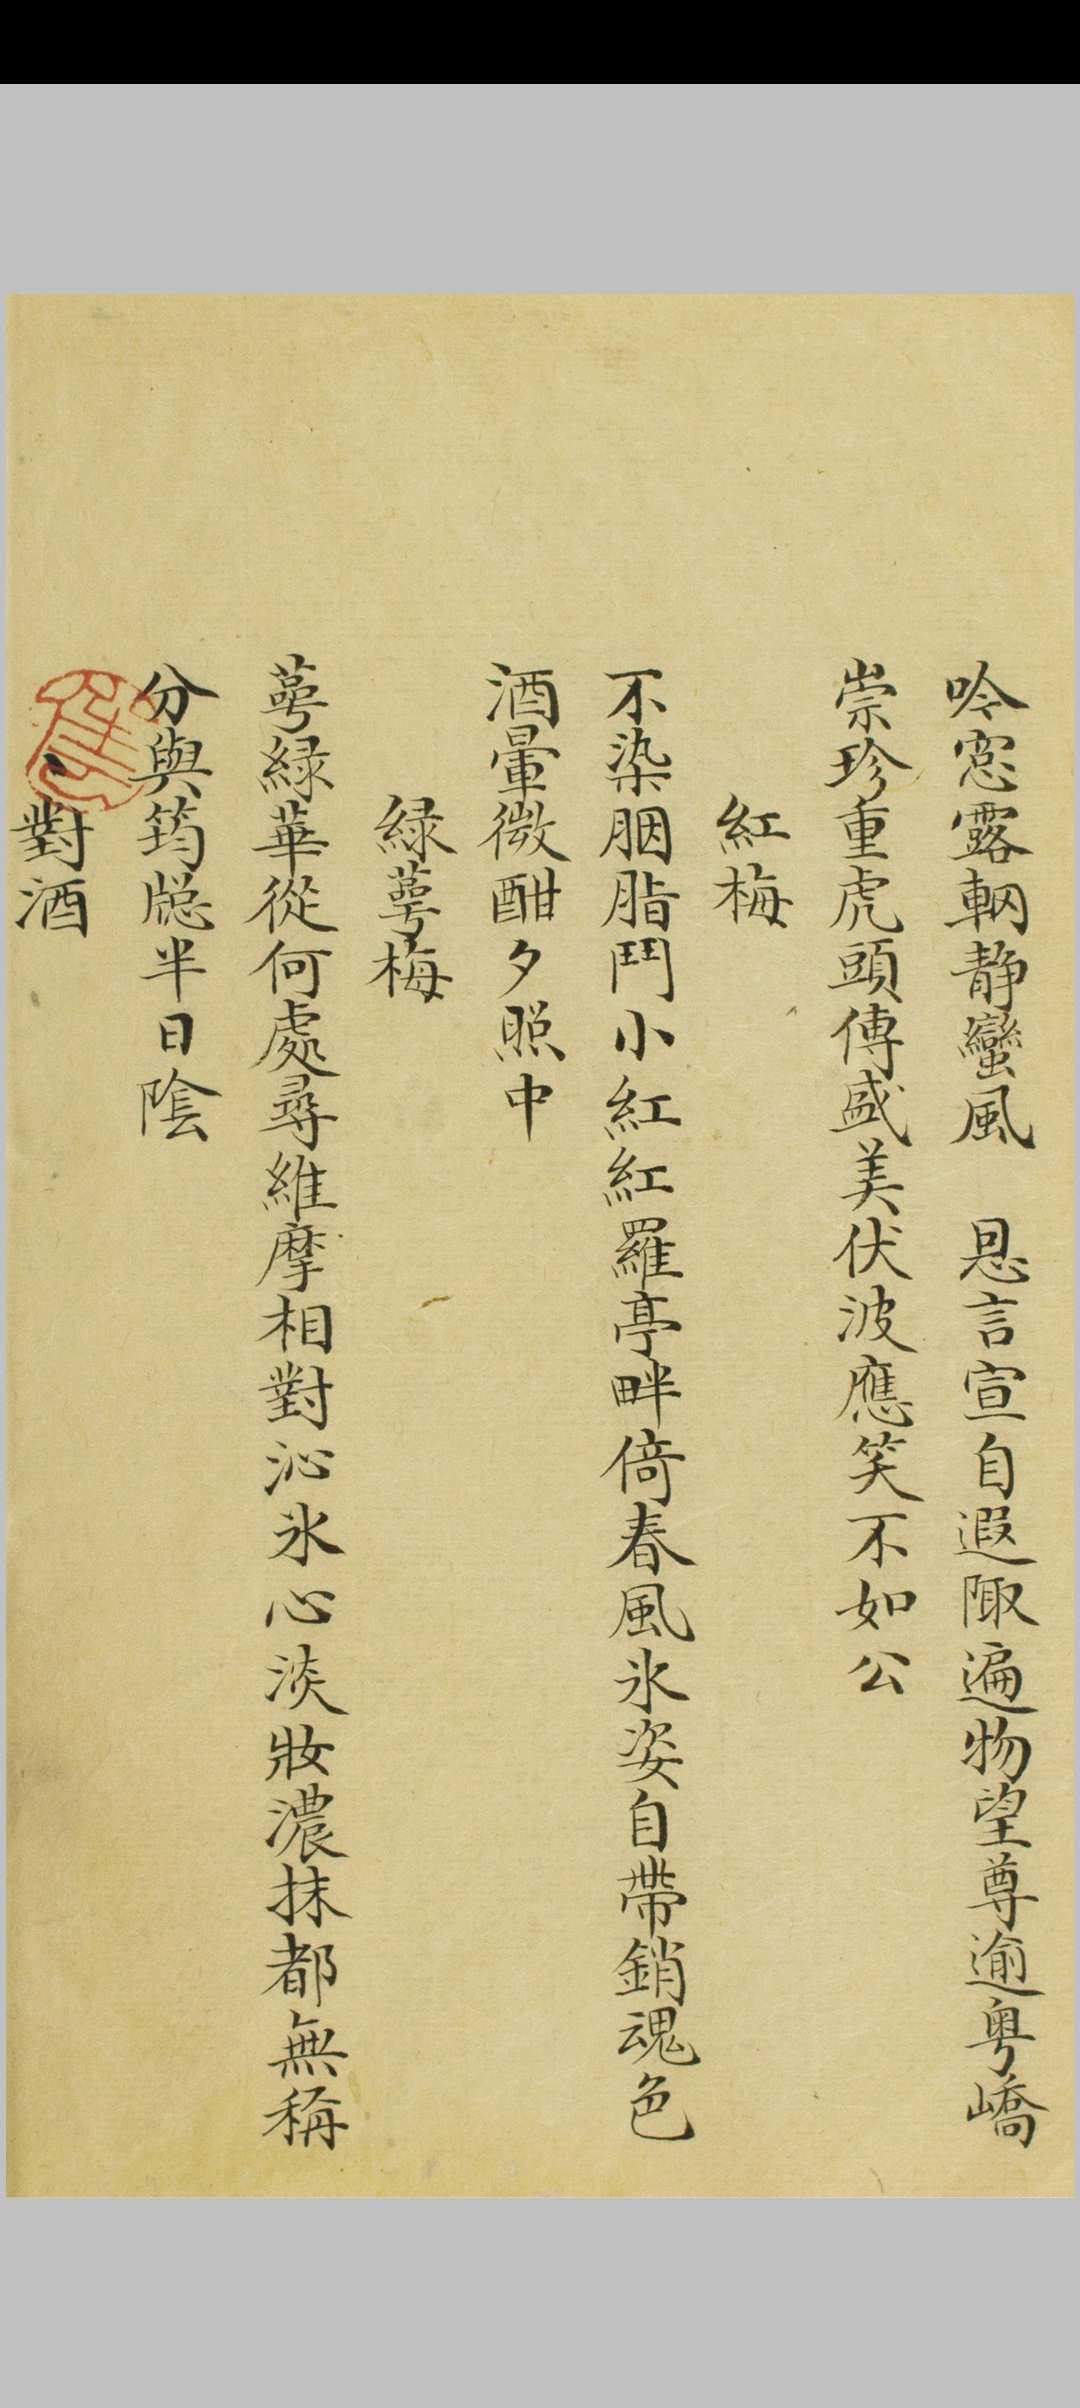 吟窓露輞静蠻風　恩言宣自遐陬遍物望尊逾粤嶠
崇珍重虎頭傳盛美伏波應笑不如公
紅梅
不染胭脂鬥小紅紅羅亭畔倚春風氷姿自帶銷魂色
酒暈微酣夕照中
緑萼梅
萼緑華從何處尋維摩相對沁氷心淡妝濃抹都無稱
分與筠牕半日陰
對酒